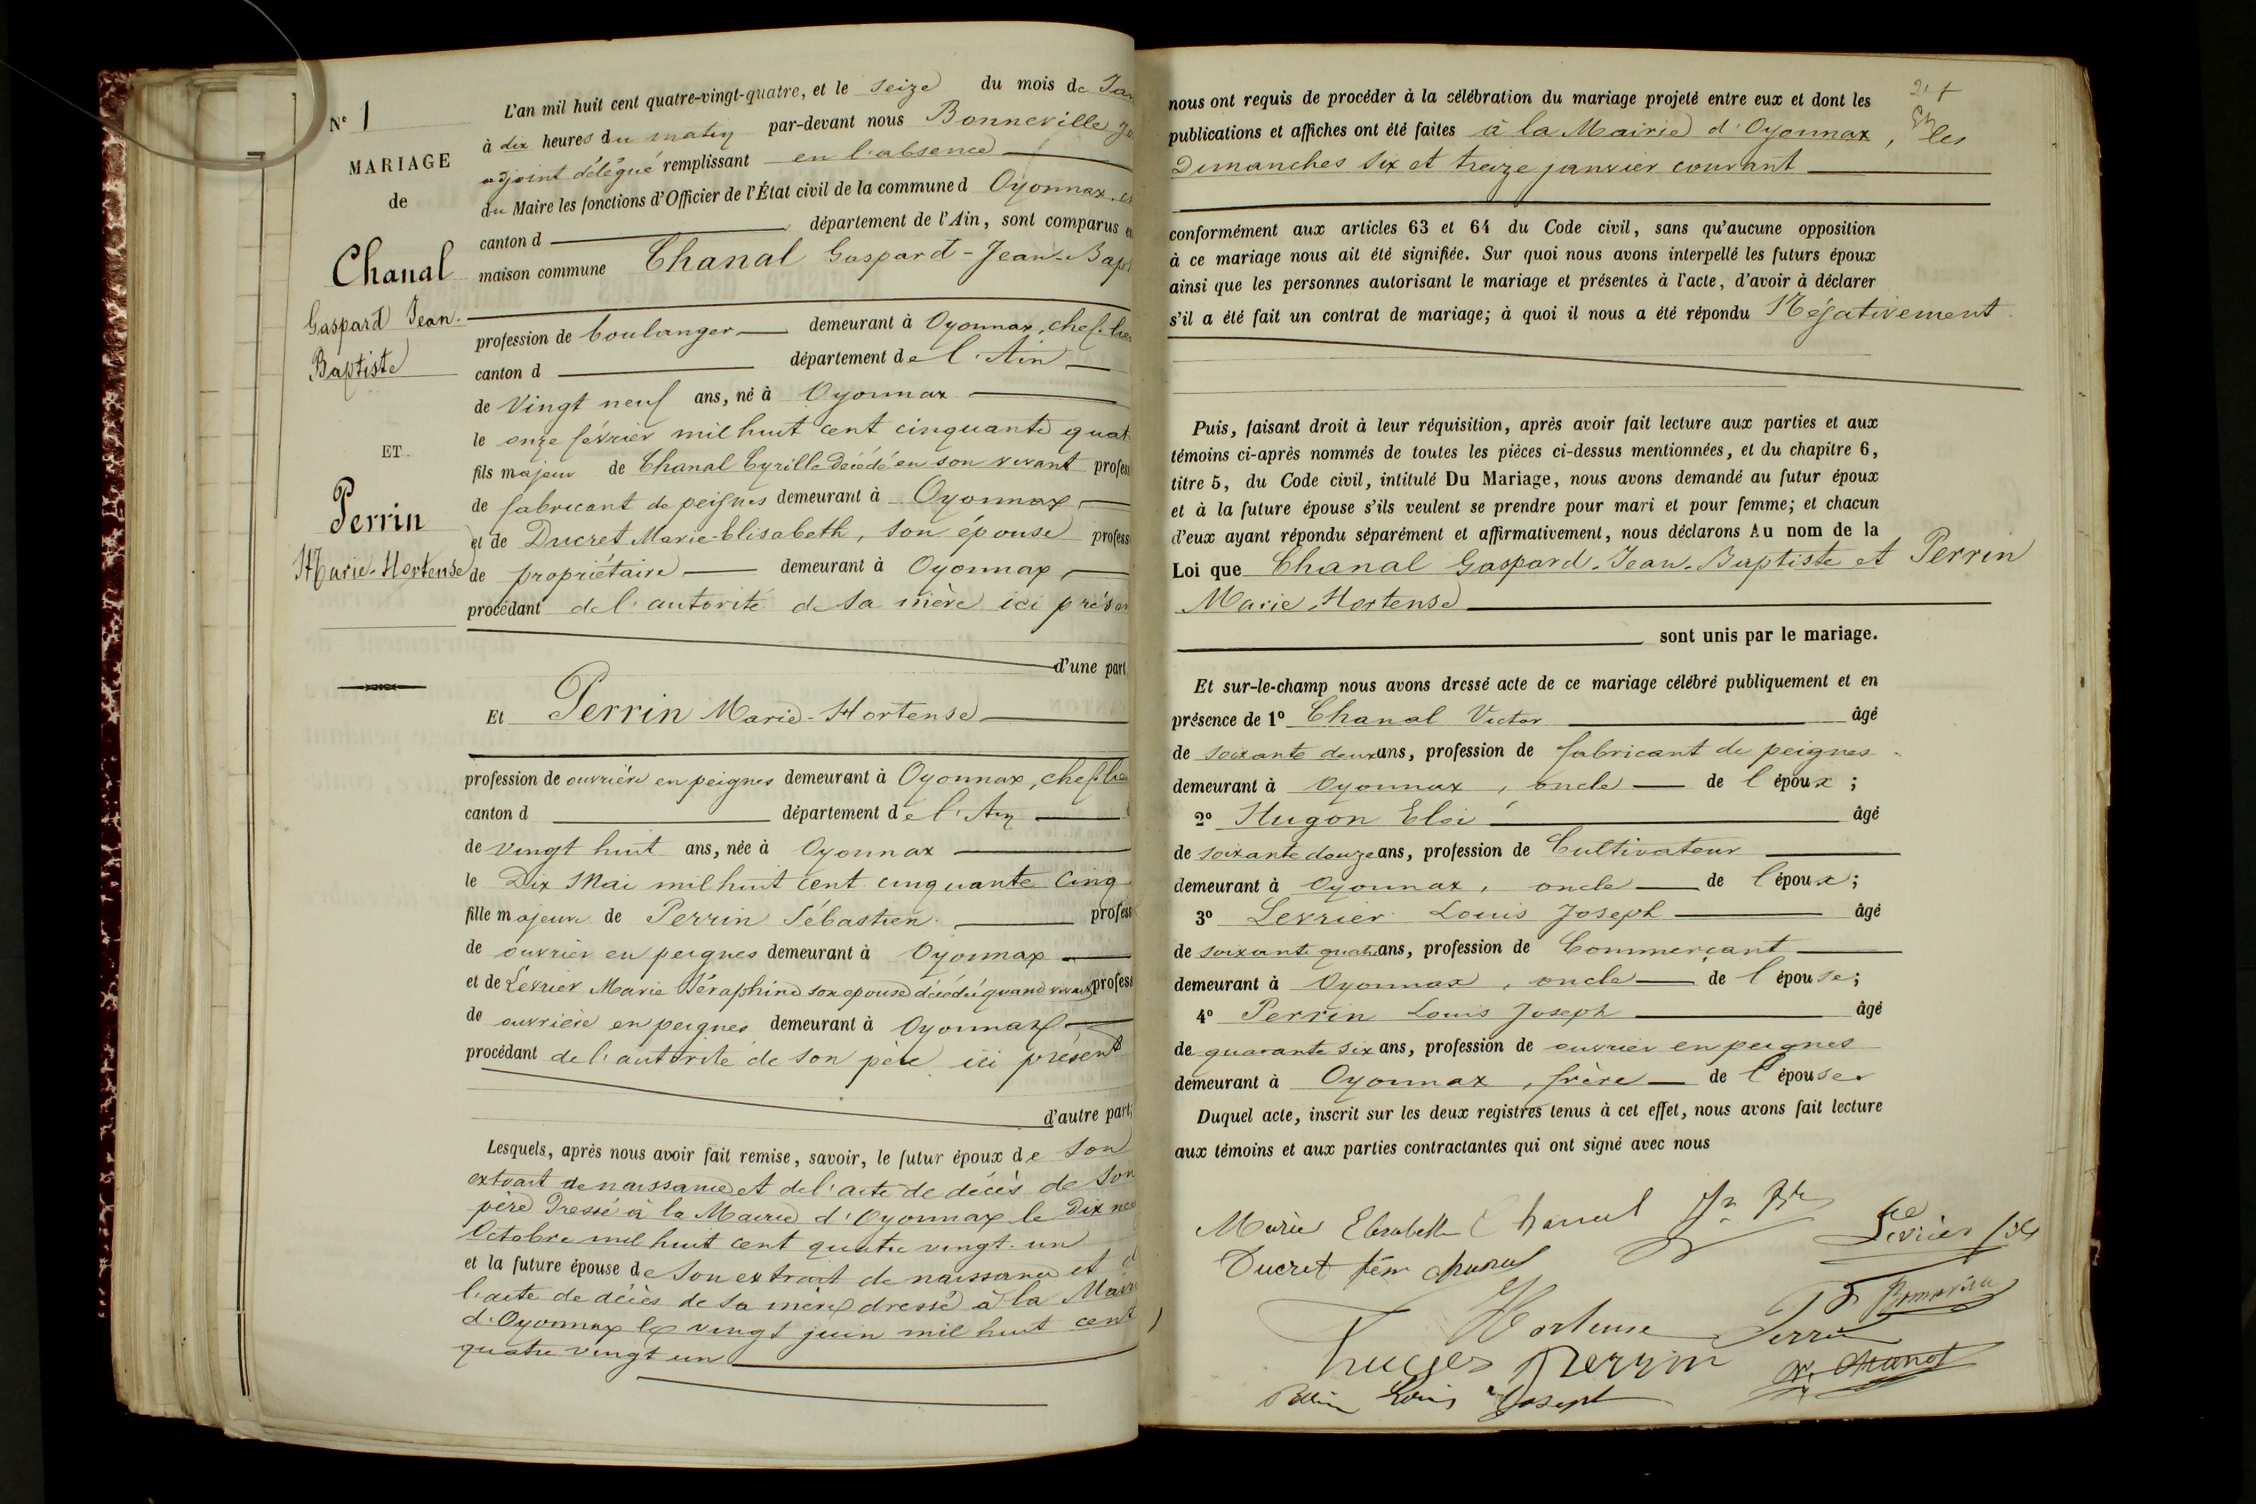 N° 1
MARIAGE
de
Chanal
Gaspard Jean-
Baptiste
ET
Perrin
Marie-Hortense
L'an mil huit cent quatre-vingt-quatre, et le seize du mois de Jan
à dix heures du matin par-devant nous Bonneville
adjoint délégué remplissant en l'absence
du Maire les fonctions d'Officier de l'État civil de la commune d Oyonnax,
canton d département de l'Ain, sont comparus en
maison commune Chanal Gaspard-Jean-Bapt
profession de boulanger demeurant à Oyonnax, chef-lieu
canton d département de l'Ain
de vingt neuf ans, né à Oyonnax
le onze février mil huit cent cinquante quat
fils majeur de Chanal Cyrille décédé en son vivant profess
de fabricant de peignes demeurant à Oyonnax,
et de Ducret Marie-Elisabeth, son épouse profess
de propriétaire demeurant à Oyonnax,
procédant de l'autorité de sa mère ici présen
d'une part
Et Perrin Marie-Hortense
profession de ouvrière en peignes demeurant à Oyonnax, chef-lieu
canton d département de l'Ain
de vingt huit ans, née à Oyonnax
le Dix Mai mil huit cent cinquante cinq
fille majeure de Perrin Sébastien profess
de ouvrier en peignes demeurant à Oyonnax
et de Levrier Marie Séraphine son épouse décédée quand vivait profess
de ouvrière en peignes demeurant à Oyonnax
procédant de l'autorité de son père ici présent
d'autre part;
Lesquels, après nous avoir fait remise, savoir, le futur époux de son
extrait de naissance et de l'acte de décès de son
père dressé à la Mairie d'Oyonnax le Dix neu
Octobre mil huit cent quatre vingt-un
et la future épouse de son extrait de naissance et d
l'acte de décès de sa mère dressé à la Mairie
d'Oyonnax le vingt juin mil huit cent
quatre vingt un
nous ont requis de procéder à la célébration du mariage projeté entre eux et dont les
publications et affiches ont été faites à la Mairie d'Oyonnax, les
Dimanches six et treize janvier courant
conformément aux articles 63 et 64 du Code civil, sans qu'aucune opposition
à ce mariage nous ait été signifiée. Sur quoi nous avons interpellé les futurs époux
ainsi que les personnes autorisant le mariage et présentes à l'acte, d'avoir à déclarer
s'il a été fait un contrat de mariage; à quoi il nous a été répondu Négativement
Puis, faisant droit à leur réquisition, après avoir fait lecture aux parties et aux
témoins ci-après nommés de toutes les pièces ci-dessus mentionnées, et du chapitre 6,
titre 5, du Code civil, intitulé Du Mariage, nous avons demandé au futur époux
et à la future épouse s'ils veulent se prendre pour mari et pour femme; et chacun
d'eux ayant répondu séparément et affirmativement, nous déclarons Au nom de la
Loi que Chanal Gaspard-Jean-Baptiste et Perrin
Marie-Hortense
sont unis par le mariage.
Et sur-le-champ nous avons dressé acte de ce mariage célébré publiquement et en
présence de 1° Chanal Victor âgé
de soixante deux ans, profession de fabricant de peignes
demeurant à Oyonnax, oncle de l'époux;
2° Hugon Eloi âgé
de soixante douze ans, profession de Cultivateur
demeurant à Oyonnax, oncle de l'époux;
3° Levrier Louis Joseph âgé
de soixante quatre ans, profession de Commerçant
demeurant à Oyonnax, oncle de l'épouse;
4° Perrin Louis Joseph âgé
de quarante six ans, profession de ouvrier en peignes
demeurant à Oyonnax, frère de l'épouse
Duquel acte, inscrit sur les deux registres tenus à cet effet, nous avons fait lecture
aux témoins et aux parties contractantes qui ont signé avec nous
Marie Elisabeth Chanal Jn Bte
Ducret fem chanal Levrier
Hortense Perrin
Perrin
Perrin Louis Joseph